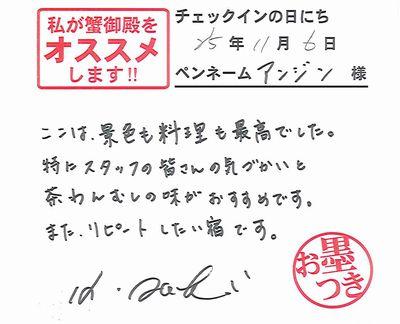 私が蟹御殿を
オススメ
します!!
チェックインの日にち
25年11月6日
ペンネーム アンジン 様
ここは、景色も料理も最高でした。
特にスタッフの皆さんの気づかいと
茶わんむしの味がおすすめです。
また、リピートしたい宿です。
お墨つき